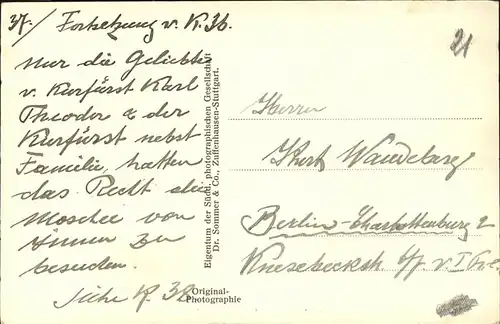 37./ Fortsetzung v. K. 36.
Nur die Geliebte
v. Kurfürst Karl
Theodor & der
Kurfürst nebst
Familie, hatten
das Recht die
Moschee von
Innen zu
besuchen.
Siehe K. 38
Eigentum der Südd. photographischen Gesellschaft
Dr. Sommer & Co., Zuffenhausen-Stuttgart.
Original-
Photographie
21
Herrn
Kurt Wandeberg
Berlin-Charlottenburg 2
Knesebeckstr.